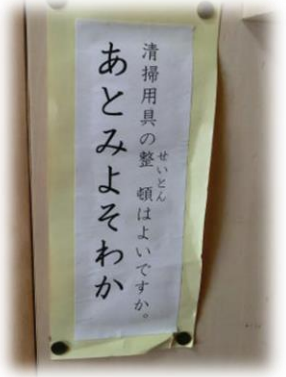 清掃用具の整頓はよいですか。
せいとん
あとみよそわか